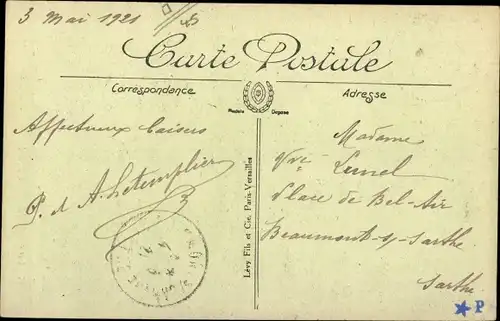 3 Mai 1921
Carte Postale
Correspondance
Adresse
Modèle Déposé
Affectueux baisers
P. et A. Letemplier
Lévy Fils et Cie, Paris-Versailles
Madame
Vve Lunel
Place de Bel-Air
Beaumont s/ Sarthe
Sarthe
P